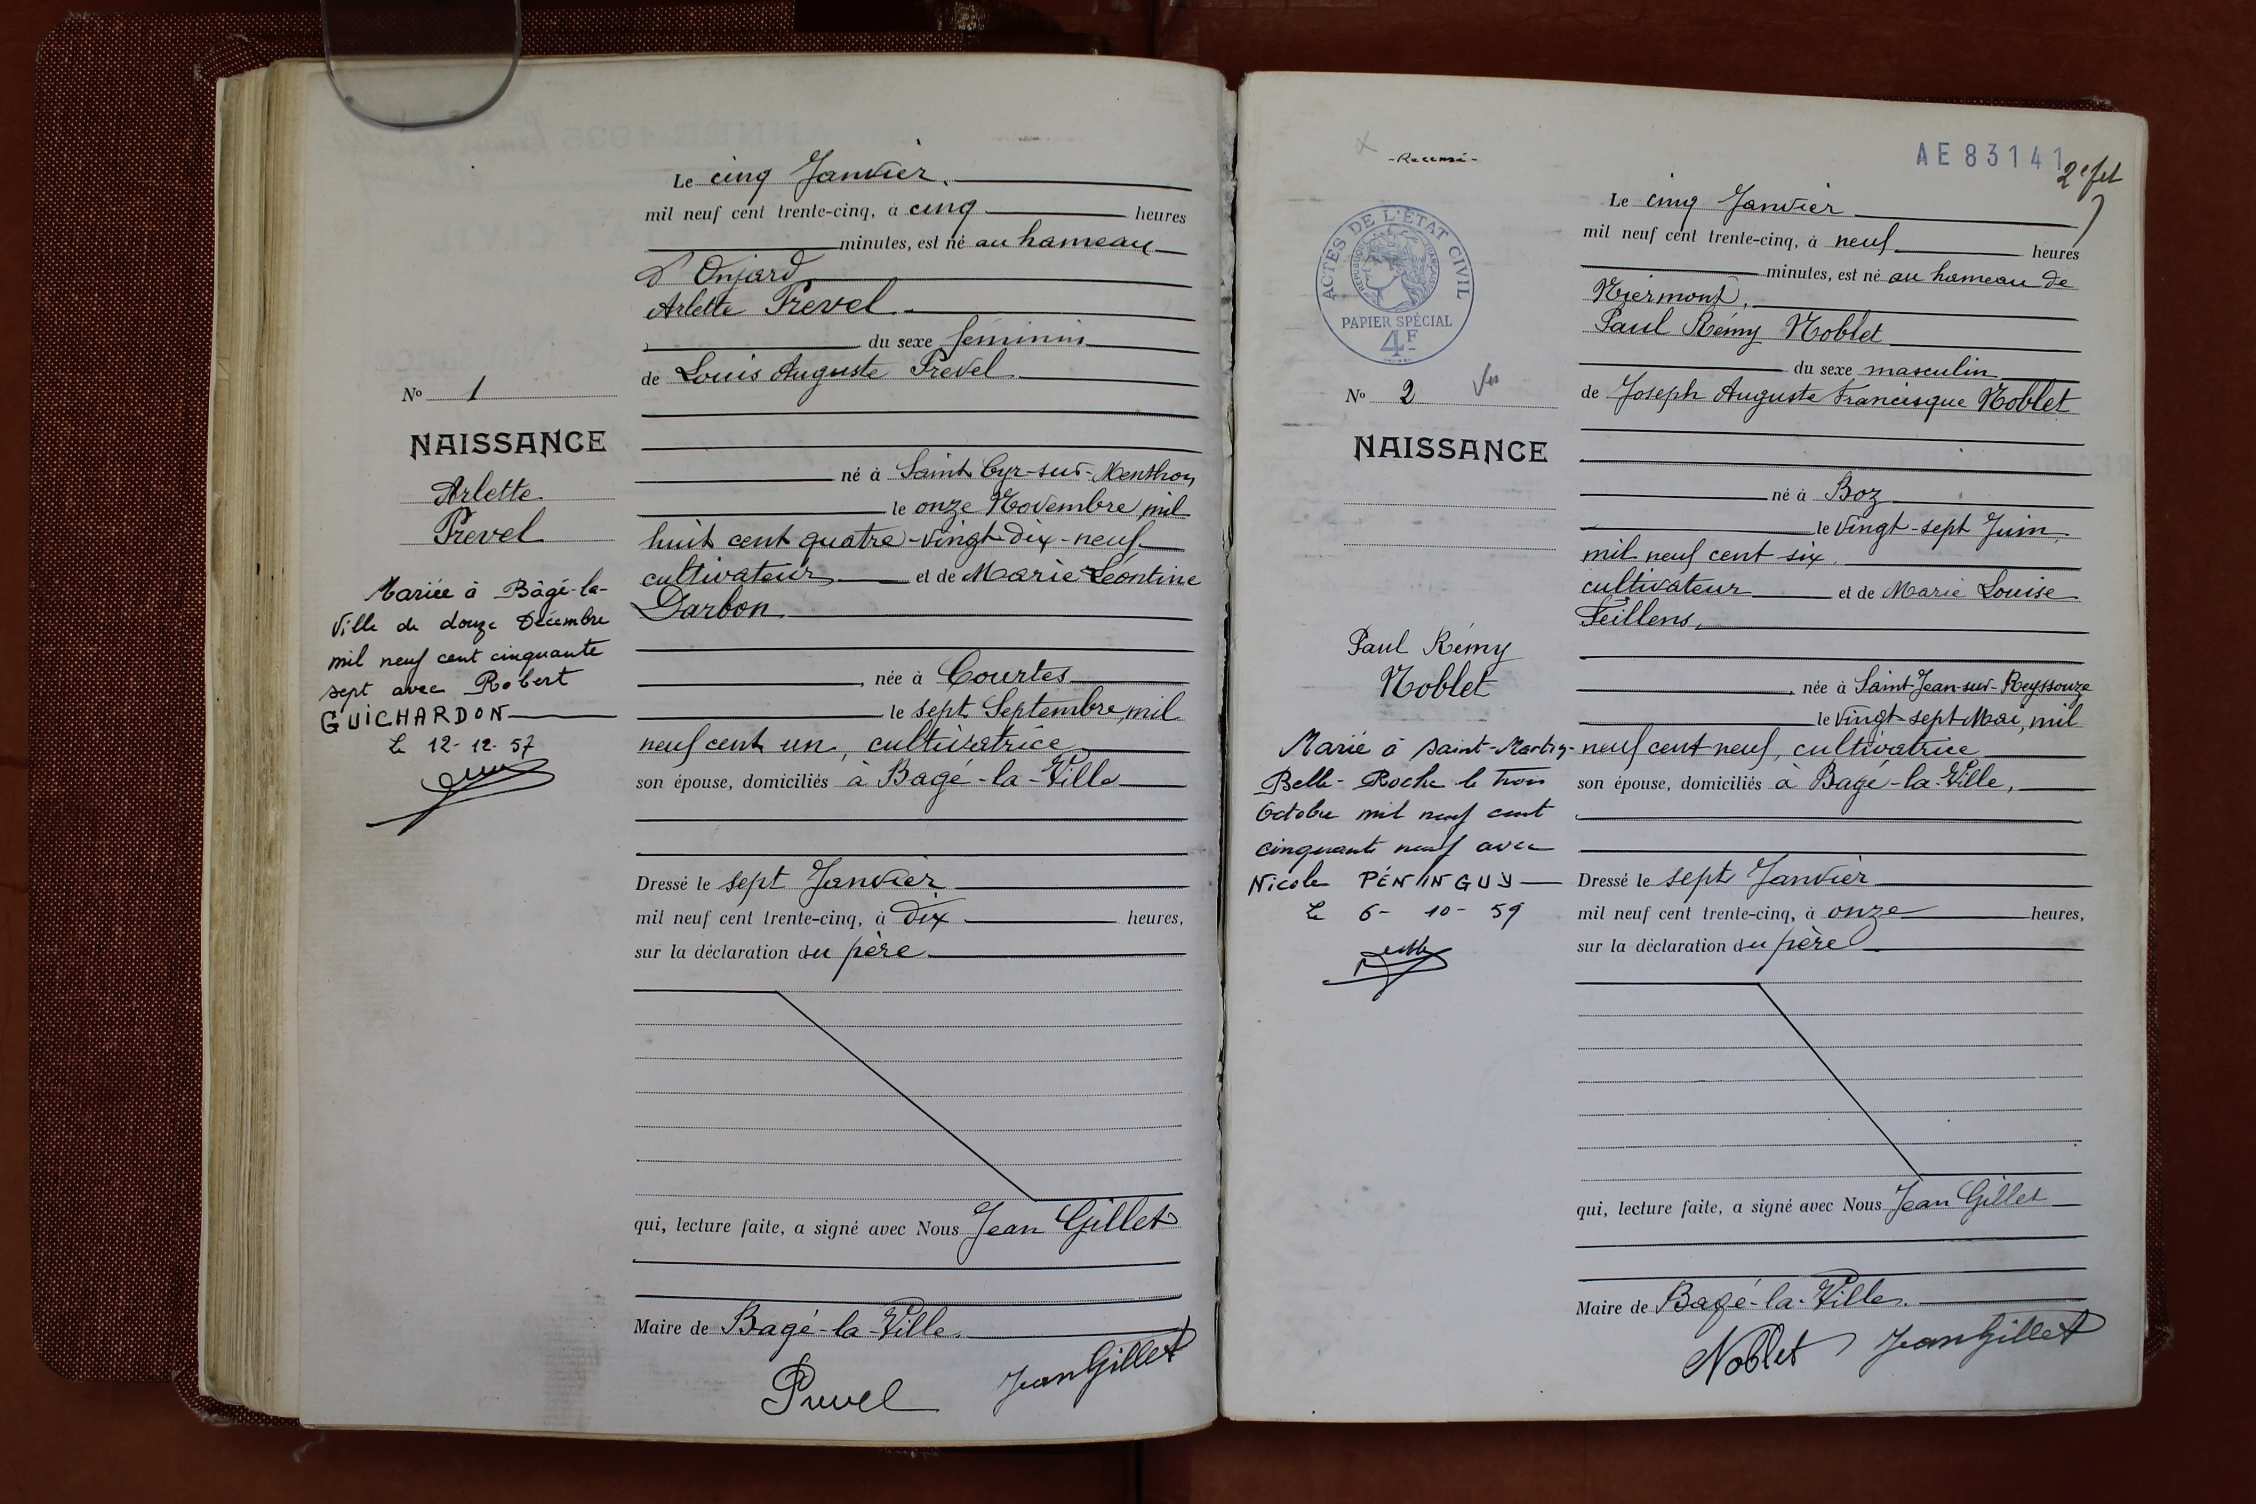 Le cinq Janvier.
mil neuf cent trente-cinq, à cinq heures
minutes, est né au hameau
d'Onjard
Arlette Prevel
du sexe féminin
de Louis Auguste Prevel
né à Saint Cyr-sur-Menthon
le onze Novembre mil
huit cent quatre-vingt-dix-neuf
cultivateur et de Marie Léontine
Darbon
née à Courtes
le sept Septembre mil
neuf cent un, cultivatrice
son épouse, domiciliés à Bagé-la-Ville
Dressé le sept Janvier
mil neuf cent trente-cinq, à dix heures,
sur la déclaration du père
qui, lecture faite, a signé avec Nous Jean Gillet
Maire de Bagé-la-Ville
Prevel Jean Gillet
No 1
NAISSANCE
Arlette
Prevel
Mariée à Bâgé-la-
Ville le douze Décembre
mil neuf cent cinquante
sept avec Robert
GUICHARDON
Le 12-12-57
AE83141
2e fet
- Recensé -
Le cinq Janvier
mil neuf cent trente-cinq, à neuf heures
minutes, est né au hameau de
Niermont,
Paul Rémy Noblet
du sexe masculin
de Joseph Auguste Francisque Noblet
né à Boz
le vingt-sept Juin
mil neuf cent six
cultivateur et de Marie Louise
Feillens,
née à Saint Jean-sur-Reyssouze
le vingt-sept Mai, mil
neuf cent neuf, cultivatrice
son épouse, domiciliés à Bagé-la-Ville,
Dressé le sept Janvier
mil neuf cent trente-cinq, à onze heures,
sur la déclaration du père
qui, lecture faite, a signé avec Nous Jean Gillet
Maire de Bagé-la-Ville.
Noblet Jean Gillet
ACTES DE L'ÉTAT CIVIL
RÉPUBLIQUE FRANÇAISE
PAPIER SPÉCIAL
4F
No 2
NAISSANCE
Paul Rémy
Noblet
Marié à Saint-Martin-
Belle-Roche le trois
Octobre mil neuf cent
cinquante neuf avec
Nicole PÉNINGUY
Le 6-10-59